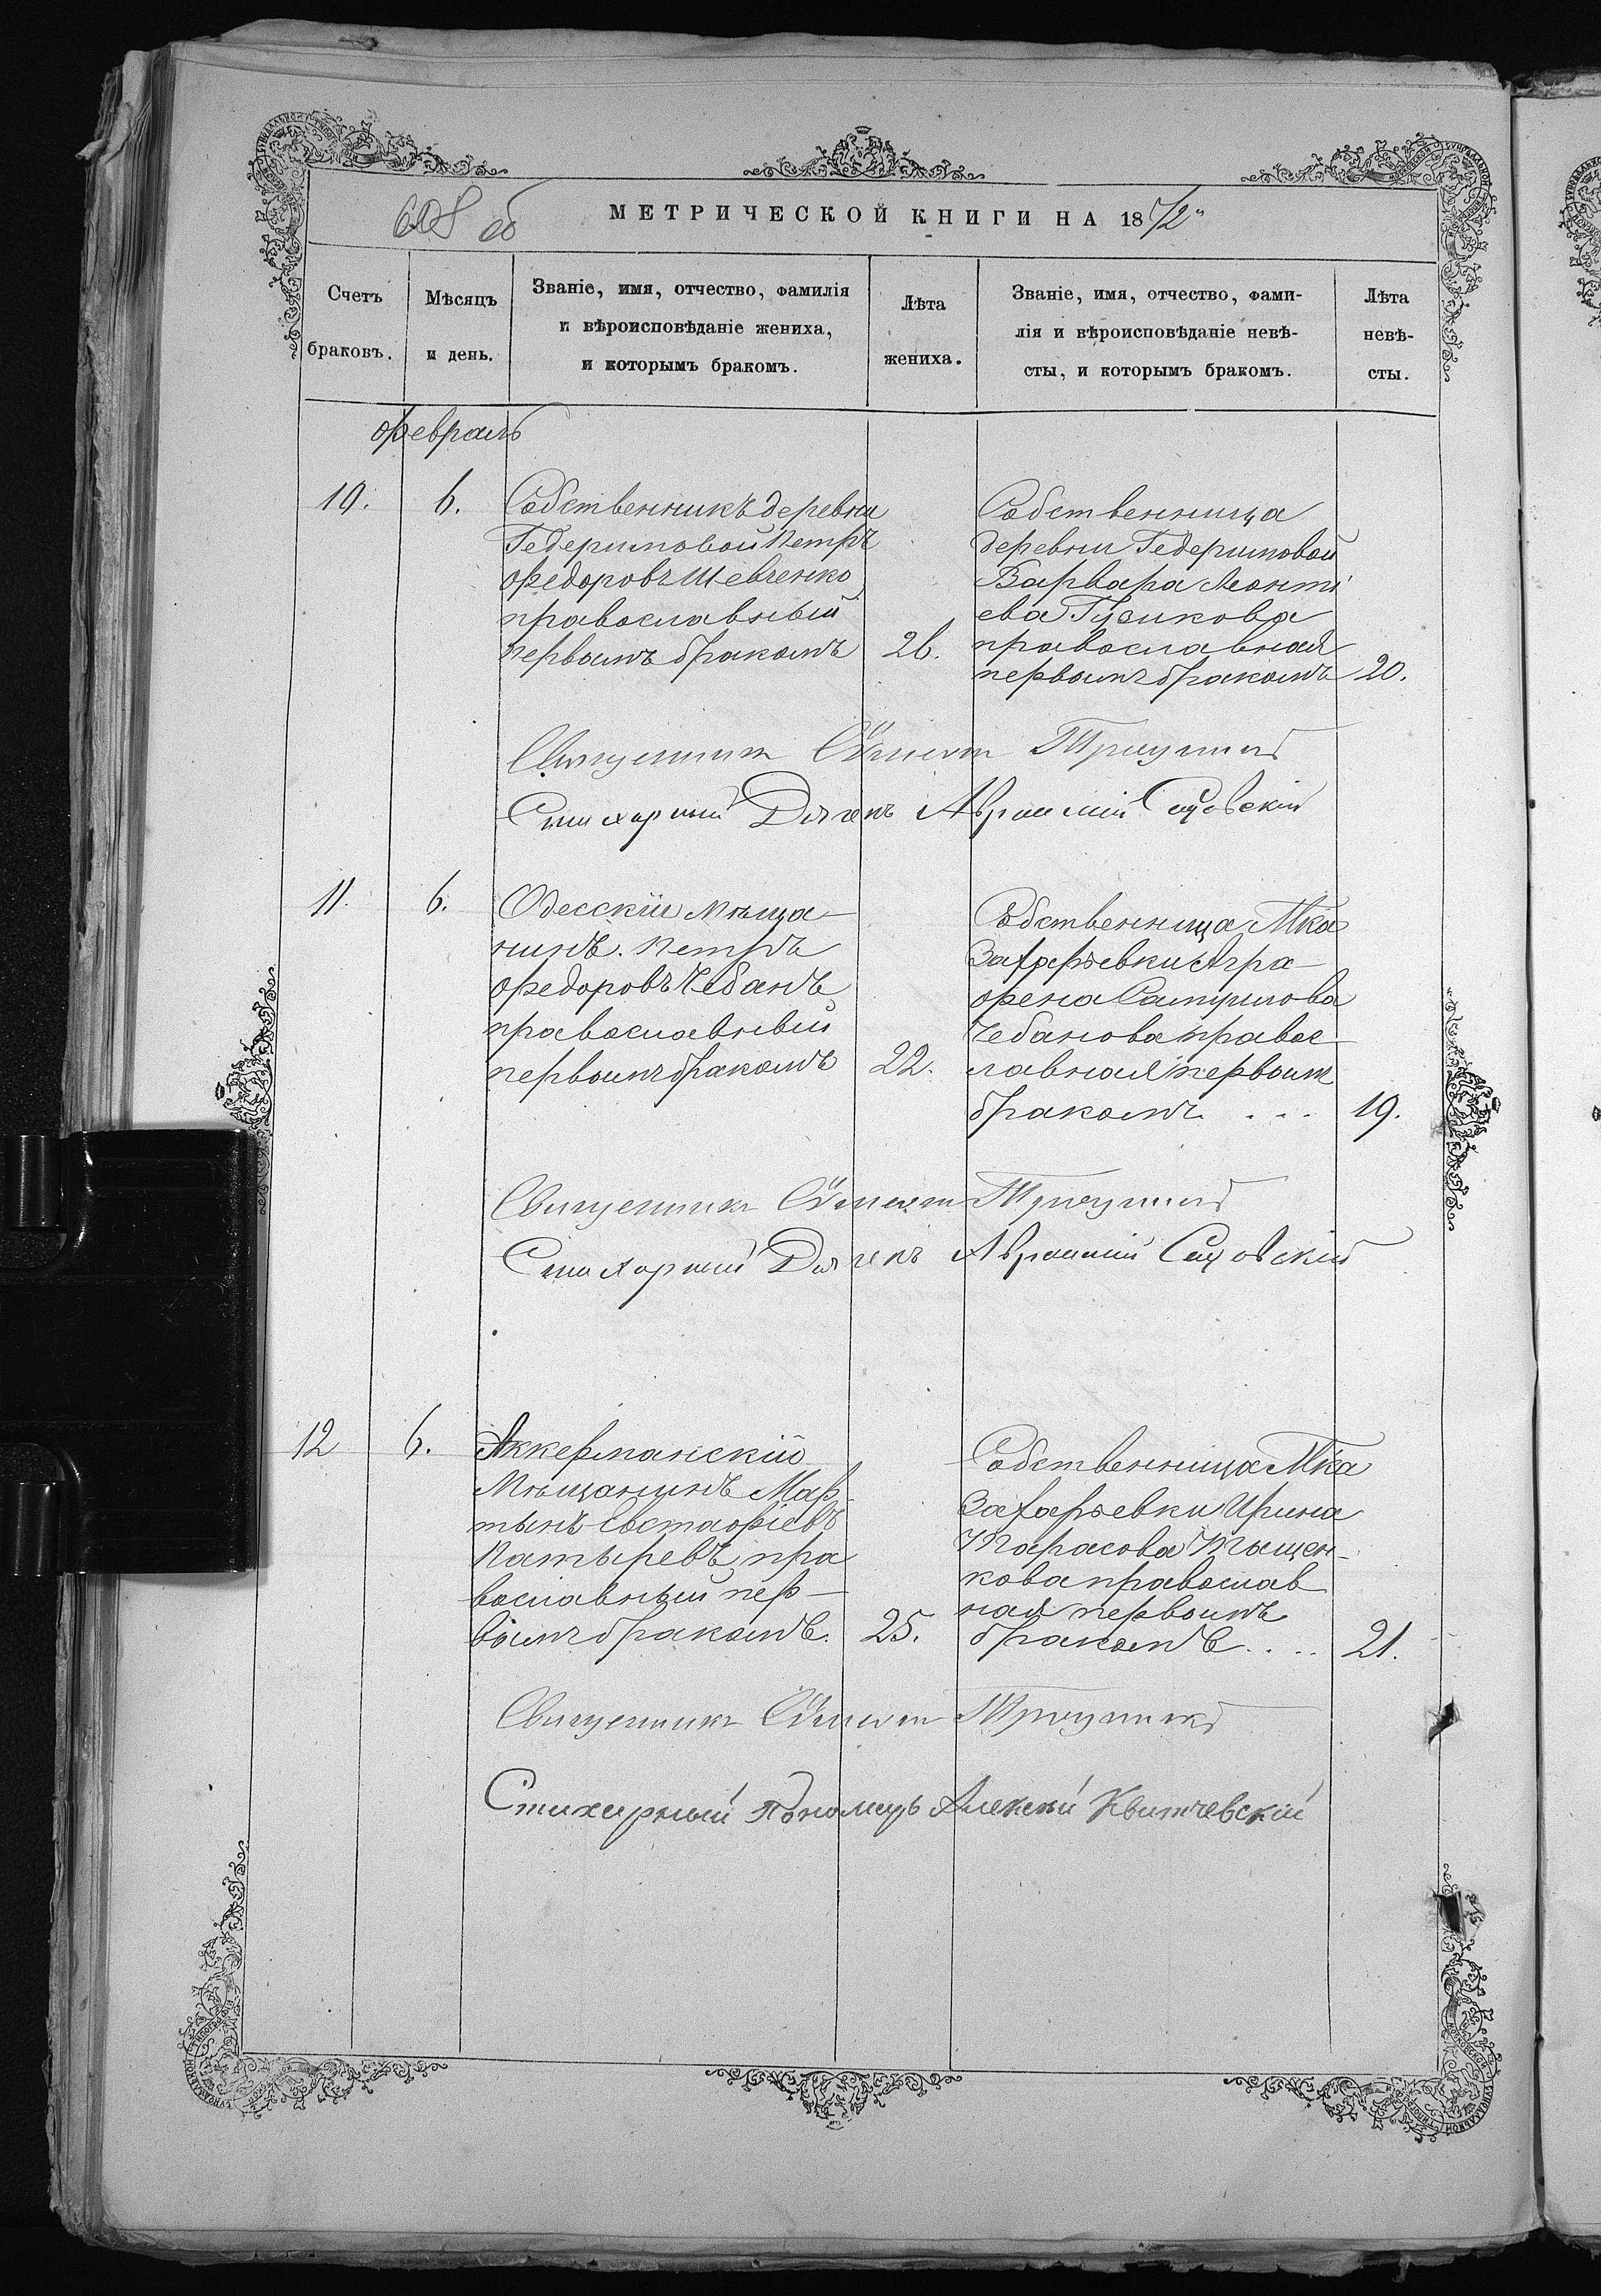 608 об
МЕТРИЧЕСКОЙ КНИГИ НА 1872
Счетъ
браковъ.
Мѣсяцъ
и день.
Званіе, имя, отчество, фамилія
и вѣроисповѣданіе жениха,
и которымъ бракомъ.
Лѣта
жениха.
Званіе, имя, отчество, фами-
лія и вѣроисповѣданіе невѣ-
сты, и которымъ бракомъ.
Лѣта
невѣ-
сты.
Февраль
10. 6.
Собственникъ деревни
Гедеримовой Петръ
Федоровъ Шевченко
православный
первымъ бракомъ 26.
Собственница
деревни Гедеримовой
Варвара Леонті
ева Гусикова
православная
первымъ бракомъ 20.
Священникъ
Стихарный Дьячекъ Авраамій Садовскій
11. 6.
Одесскій мѣща-
нинъ Петръ
Федоровъ Чебанъ
православный
первымъ бракомъ 22.
Собственница М-ка
Захарьевки Агра-
фена Самуилова
Чебанова правос-
лавная первымъ
бракомъ . . . 19.
Священникъ
Стихарный Дьячекъ Авраамій Садовскій
12 6.
Аккерманскій
Мѣщанинъ Мар-
тынъ Евстафіевъ
Патыревъ, пра
вославный пер-
вымъ бракомъ. 25.
Собственница М-ка
Захарьевки Ирина
Тарасова Тащен-
кова православ
ная первымъ
бракомъ . . . . 21.
Священникъ
Стихарный Пономарь Алексѣй Квитчевскій